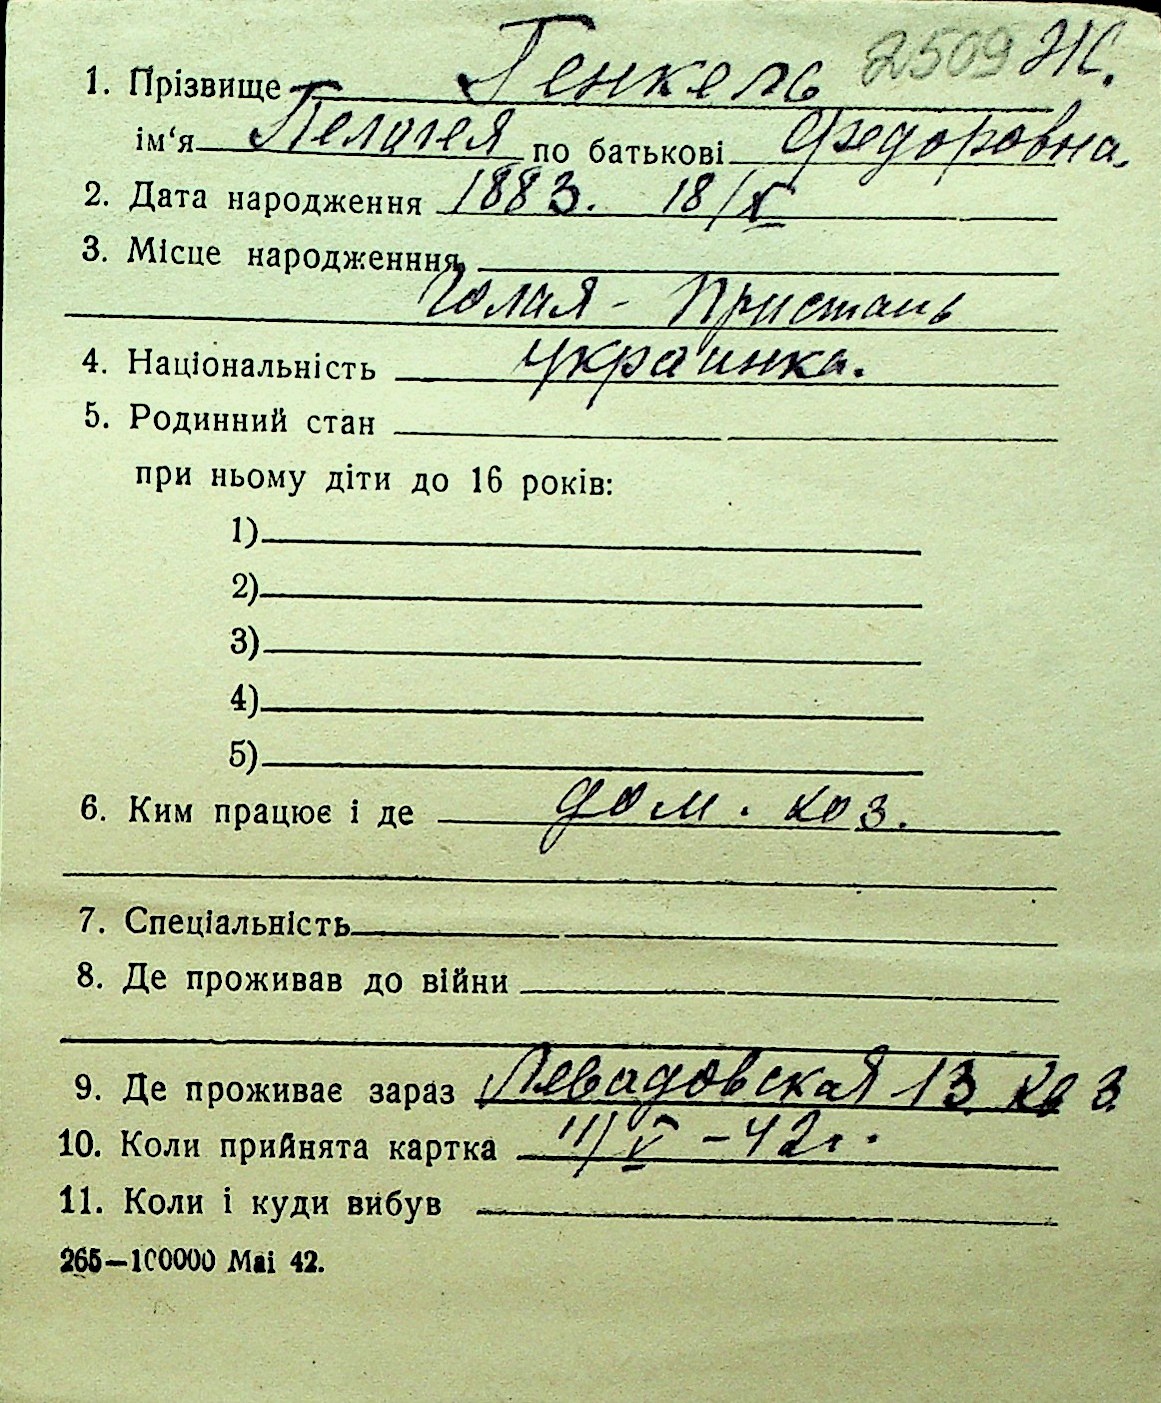 2509 Ж.
1. Прізвище Генкель
ім'я Пелагея по батькові Федоровна.
2. Дата народження 1883. 18/X
3. Місце народженння
Голая - Пристань
4. Національність украинка.
5. Родинний стан
при ньому діти до 16 років:
1)
2)
3)
4)
5)
6. Ким працює і де дом. хоз.
7. Спеціальність
8. Де проживав до війни
9. Де проживає зараз Левадовская 13 кв 3.
10. Коли прийнята картка 11/V – 42г.
11. Коли і куди вибув
265—100000 Маі 42.